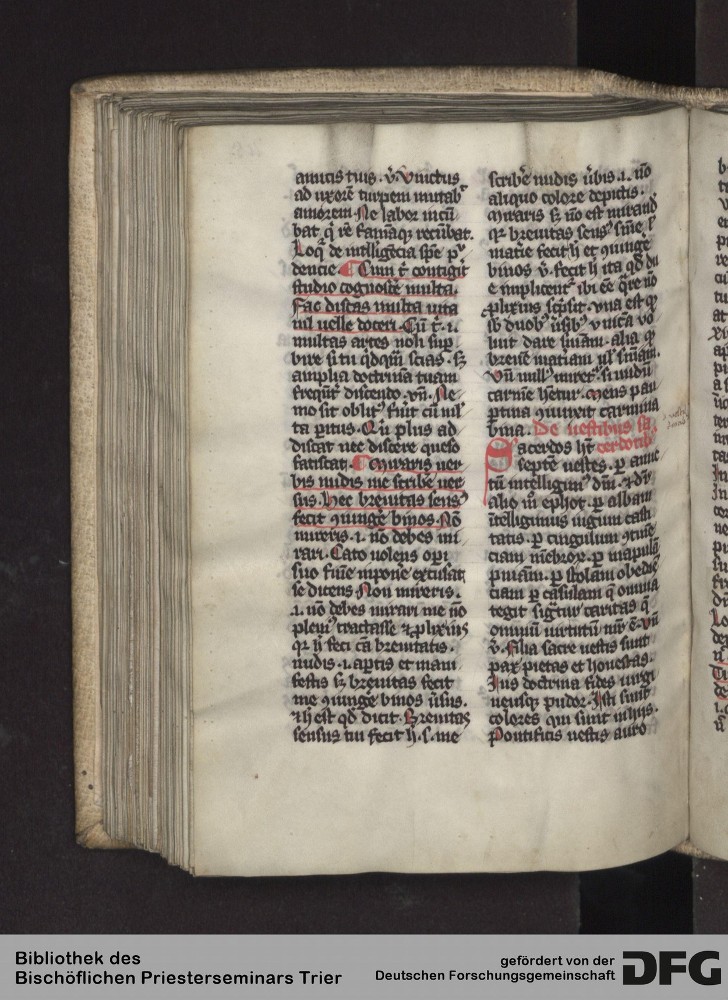 amicis tuis. v̄. Vinctus
ad uxorē turpem mutab᷑
amorem. Ne labor incū
bat q̄ rē famāq; recūbat.
Loq̄᷑ de intlligēcia sp̄e
dencie. Cum t̄ contigit
studio cognosc̄e multa.
Fac discas multa uita
nil uelle doceri. Cū t̄. i.
multas artes noli sup
bire si tu q̄dqm̄ scias. sꝫ
amplia doctrinā tuam
frequēt᷑ discendo. vn̄. Ne
mo sit oblit᷒ fu̅it cū nil᷑
ta p̄itus. Qn̄ plus ad
discat nec discere queso
fatiscat. Miraris uer
bis nudis me scribe᷑ uer
sus. Hec breuitas sens᷒
fecit ꝯiunge᷑ binos. Nō
mireris. i. nō debes mi
rari. Cato uolens opi
suo finē inpone᷑ excusat
se dicens Non mireris.
.i. nō debes mirari me nō
pleni᷒ tractasse ⁊ plixius
qr h̄ feci cā breuitatis.
nudis .i. aptis et mani
festis sꝫ breuitas fecit
me ꝯiunge᷑ binos ūsus.
⁊ h̄ est qd̄ dicit. Breuitas
sensus tui fecit h̄. s. me
scribe᷑ nudis ūbis .i. nō
aliquo colore depictis.
Miraris sꝫ nō est mirand
qr breuitas sens᷒ sine᷑
matīe fecit h̄ et ꝯiunge᷑
binos v̄. fecit h̄ ita qd̄
ē implicent᷑ ibi ēē q̄re nō
plixius scpsit. vna est
sb duob᷒ ūsib᷒ vnicā vo
luit dare snīam. alia
breuē matiam ul̄ snīam.
Vn̄ null᷒ miret᷑ si nudū
carmē het᷑ur. Mens pau
ptina ꝯiunxit carmina
bina. De uestibus sa
Sacerdos ht̄ cerdotib᷒
septē uestes. p amic
tū intelligim᷒ ⁊
alio m̄ ephot. p albam
ītelligimus uigium casti
tatis. p cingulum ꝯtinē
ciam mēbroꝝ. p mapulā
pniam. p stolam obediē
ciam p casulam q̄ omnia
tegit sigt᷑ur caritas q̄
omniū uirtutū mr̄ ē. vn̄
v̄. Alia sacre uestis sunt
pax pietas et honestas.
Ius doctrina fides uirgi
neusq; pudor. Isti sunt
colores qui sunt ī hiis.
Pontificis uestis auro
Bibliothek des
Bischöflichen Priesterseminars Trier
gefördert von der
Deutschen Forschungsgemeinschaft
DFG